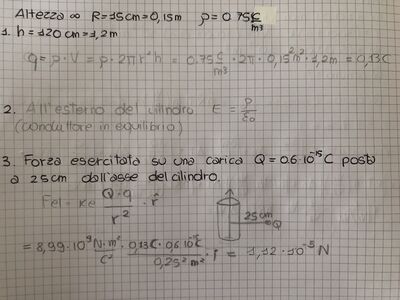 Altezza ∞ R=15cm=0,15m ρ=0.75 C/m³
1. h=120cm=1,2m
q=ρ·V=ρ·2π r²h = 0.75 C/m³ ·2π·0,15²m²·1,2m=0,13C
2. All'esterno del cilindro E = ρ/ε₀
(conduttore in equilibrio)
3. Forza esercitata su una carica Q=0.6·10⁻¹⁵C posta
a 25cm dall'asse del cilindro.
Fel=ke Q·q/r² · r̂
25cm
Q
= 8,99·10⁹ N·m²/C² · 0,13C·0,6·10⁻¹⁵C/0,25²m² · r̂ = 1,12·10⁻⁵N